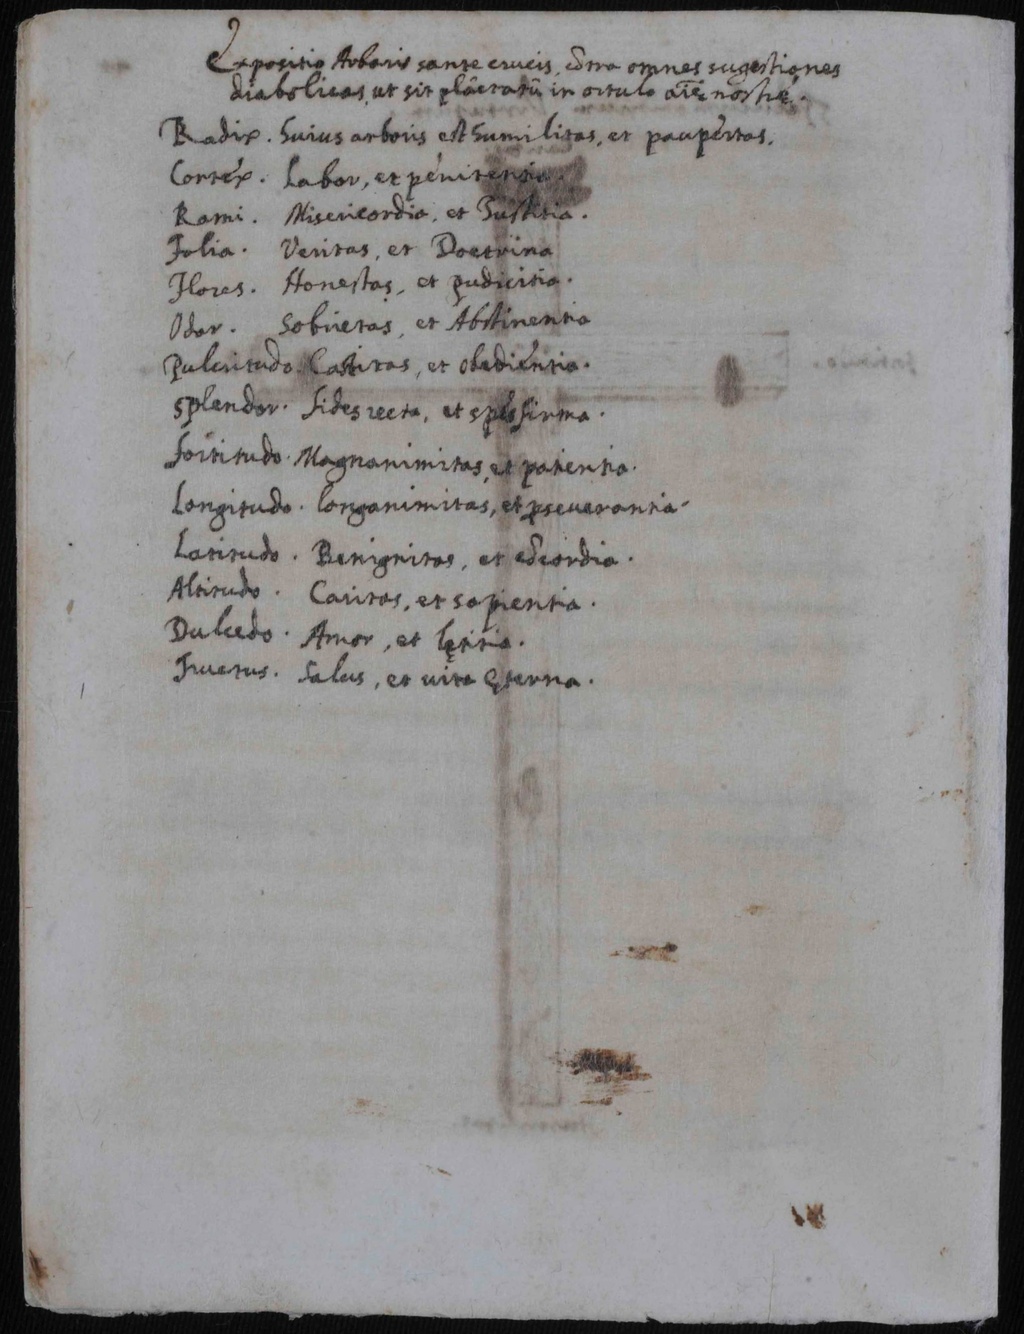 Expositio Arboris sante crucis, cōtra omnes sugestiones
diabolicas, ut sit plātatū in ortulo aīę nostrę.
Radix. huius arboris est humilitas, et paupertas.
Cortex. Labor, et penitentia.
Rami. Misericordia, et Iustitia.
Folia. Veritas, et Doctrina
Flores. Honestas, et pudicitia.
Odor. Sobrietas, et Abstinentia
Pulcritudo. Castitas, et obedientia.
Splendor. fides recta, et spes firma.
fortitudo. Magnanimitas, et patientia.
Longitudo. longanimitas, et pseuerantia.
Latitudo. Benignitas, et cōcordia.
Altitudo. Caritas, et sapientia.
Dulcedo. Amor, et lętitia.
Fructus. Salus, et uita ęterna.